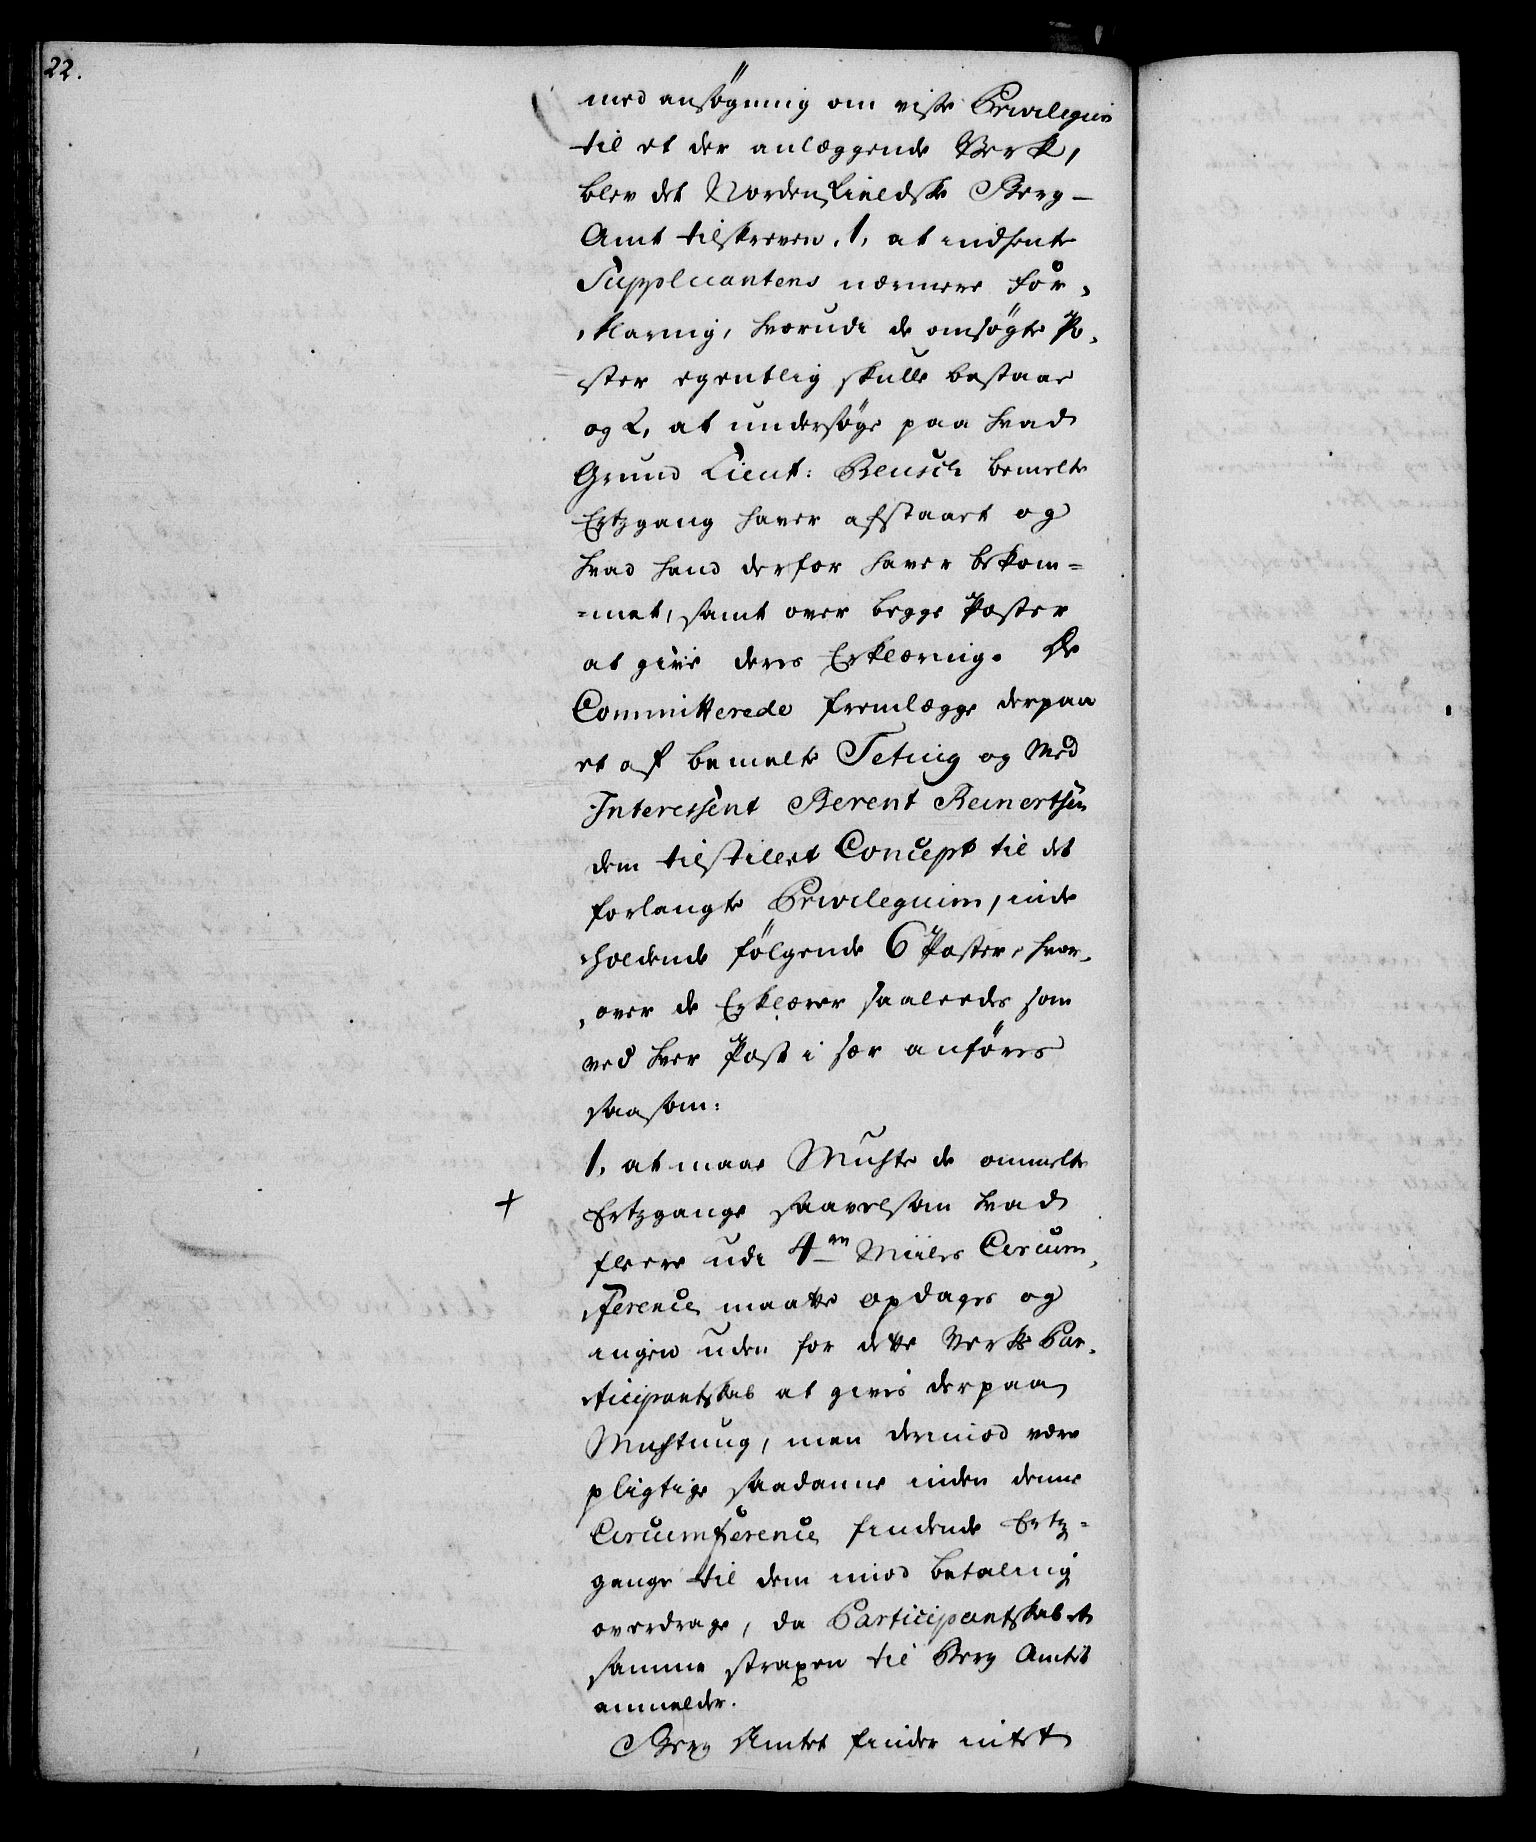 22.
med ansøgning om visse Privilegier
til et der anlæggende Verk,
blev det Nordenfieldske Berg-
Amt tilskreven, 1, at indhente
Supplicantens nærmere For,
,klaring, hvorudi de omsøgte Po,
ster egentlig skulle bestaae
og 2, at undersøge paa hvad
Grund Lieut: Reusch bemelte
Ertzgang haver afstaaet og
hvad hand derfor haver bekom=
=met, samt over begge Poster
at give deres Erklæring. De
Committerede fremlægge derpaa
et af bemelte Teting og Med
Interessent Berent Reinertsen
dem tilstilet Concept til det
forlangte Privilegium, inde
holdende følgende 6 Poster, hvor,
,over de Erklærer saaleedes som
ved hver Post i sær anføres
saasom:
1, at maae Muhte de ommelte
+ Ertzgange saavelsom hvad
fleere udi 4re Miiles Circum,
,ference maatte opdages og
ingen uden for dette Verks Par,
ticipantskab at gives derpaa
Muhtung, men derimod være
pligtige saadanne inden denne
Circumference findende Ertz=
gange til dem imod betaling
overdrage, da Participantskabet
samme straxen til Berg Amtet
anmelder.
Berg Amtet finder intet